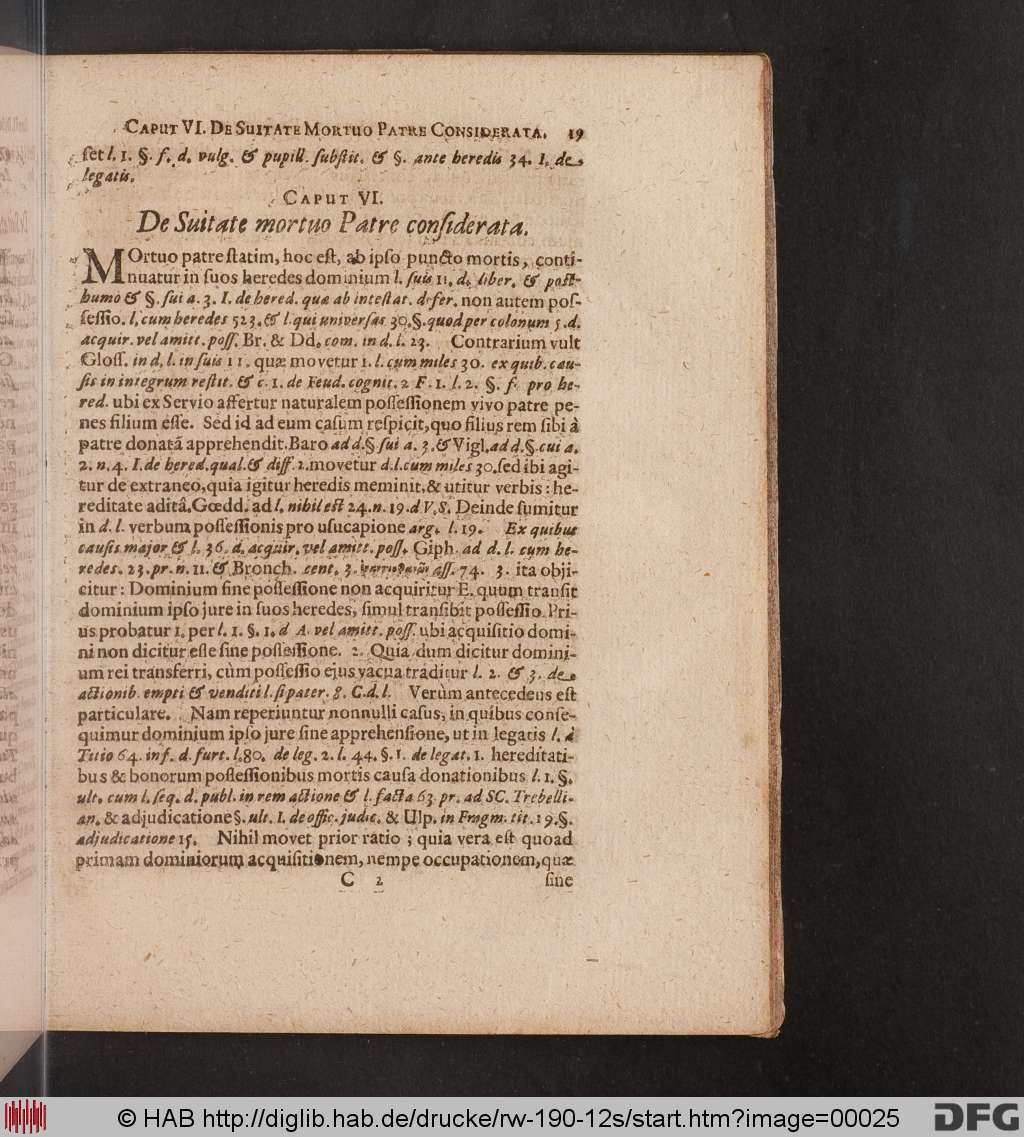 CAPUT VI. DE SUITATE MORTUO PATRE CONSIDERATA. 19
ſet l. 1. §. f. d. vulg. & pupill. ſubſtit. & §. ante heredis 34. I. de
legatis.
CAPUT VI.
De Suitate mortuo Patre conſiderata.
MOrtuo patre ſtatim, hoc eſt, ab ipſo puncto mortis, conti-
nuatur in ſuos heredes dominium l. ſuis 11. d. liber. & poſt-
humo & §. ſui a. 3. I. de hered. quæ ab inteſtat. defer. non autem poſ-
ſeſſio. l. cum heredes 523. & l. qui univerſas 30. §. quod per colonum 5. d.
acquir. vel amitt. poſſ. Br. & Dd. com. in d. l. 23. Contrarium vult
Gloſſ. in d. l. in ſuis 11. quæ movetur 1. l. cum miles 30. ex quib. cau-
ſis in integrum reſtit. & c. 1. de Feud. cognit. 2 F. 1. l. 2. §. f. pro he-
red. ubi ex Servio affertur naturalem poſſeſſionem vivo patre pe-
nes filium eſſe. Sed id ad eum caſum reſpicit, quo filius rem ſibi à
patre donatã apprehendit. Baro ad d. § ſui a. 3. & Vigl. ad d. §. cui a.
2. n. 4. I. de hered. qual. & diff. 2. movetur d. l. cum miles 30. ſed ibi agi-
tur de extraneo, quia igitur heredis meminit, & utitur verbis: he-
reditate aditâ. Gœdd. ad l. nibil eſt 24. n. 19. d V. S. Deinde ſumitur
in d. l. verbum poſſeſſionis pro uſucapione arg. l. 19. Ex quibus
cauſis major & l. 36. d. acquir. vel amitt. poſſ. Giph. ad d. l. cum he-
redes. 23. pr. n. 11. & Bronch. cent. 3. aſſ. 74. 3. ita obji-
citur: Dominium ſine poſſeſſione non acquiritur E. quum tranſit
dominium ipſo jure in ſuos heredes, ſimul tranſibit poſſeſſio. Pri-
us probatur 1. per l. 1. §. 1. d A. vel amitt. poſſ. ubi acquiſitio domi-
ni non dicitur eſſe ſine poſſeſſione. 2. Quia dum dicitur domini-
um rei transferri, cùm poſſeſſio ejus vacua traditur l. 2. & 3. de
actionib. empti & venditi l. ſi pater. 8. C. d. l. Verùm antecedens eſt
particulare. Nam reperiuntur nonnulli caſus, in quibus conſe-
quimur dominium ipſo jure ſine apprehenſione, ut in legatis l. à
Titio 64. inf. d. furt. l. 80. de leg. 2. l. 44. §. 1. de legat. 1. hereditati-
bus & bonorum poſſeſſionibus mortis cauſa donationibus l. 1. §.
ult. cum l. ſeq. d. publ. in rem actione & l. facta 63. pr. ad SC. Trebelli-
an. & adjudicatione §. ult. I. de offic. judic. & Ulp. in Fragm. tit. 19. §.
adjudicatione 15. Nihil movet prior ratio; quia vera eſt quoad
primam dominiorum acquiſitionem, nempe occupationem, quæ
C 2 ſine
© HAB http://diglib.hab.de/drucke/rw-190-12s/start.htm?image=00025 DFG